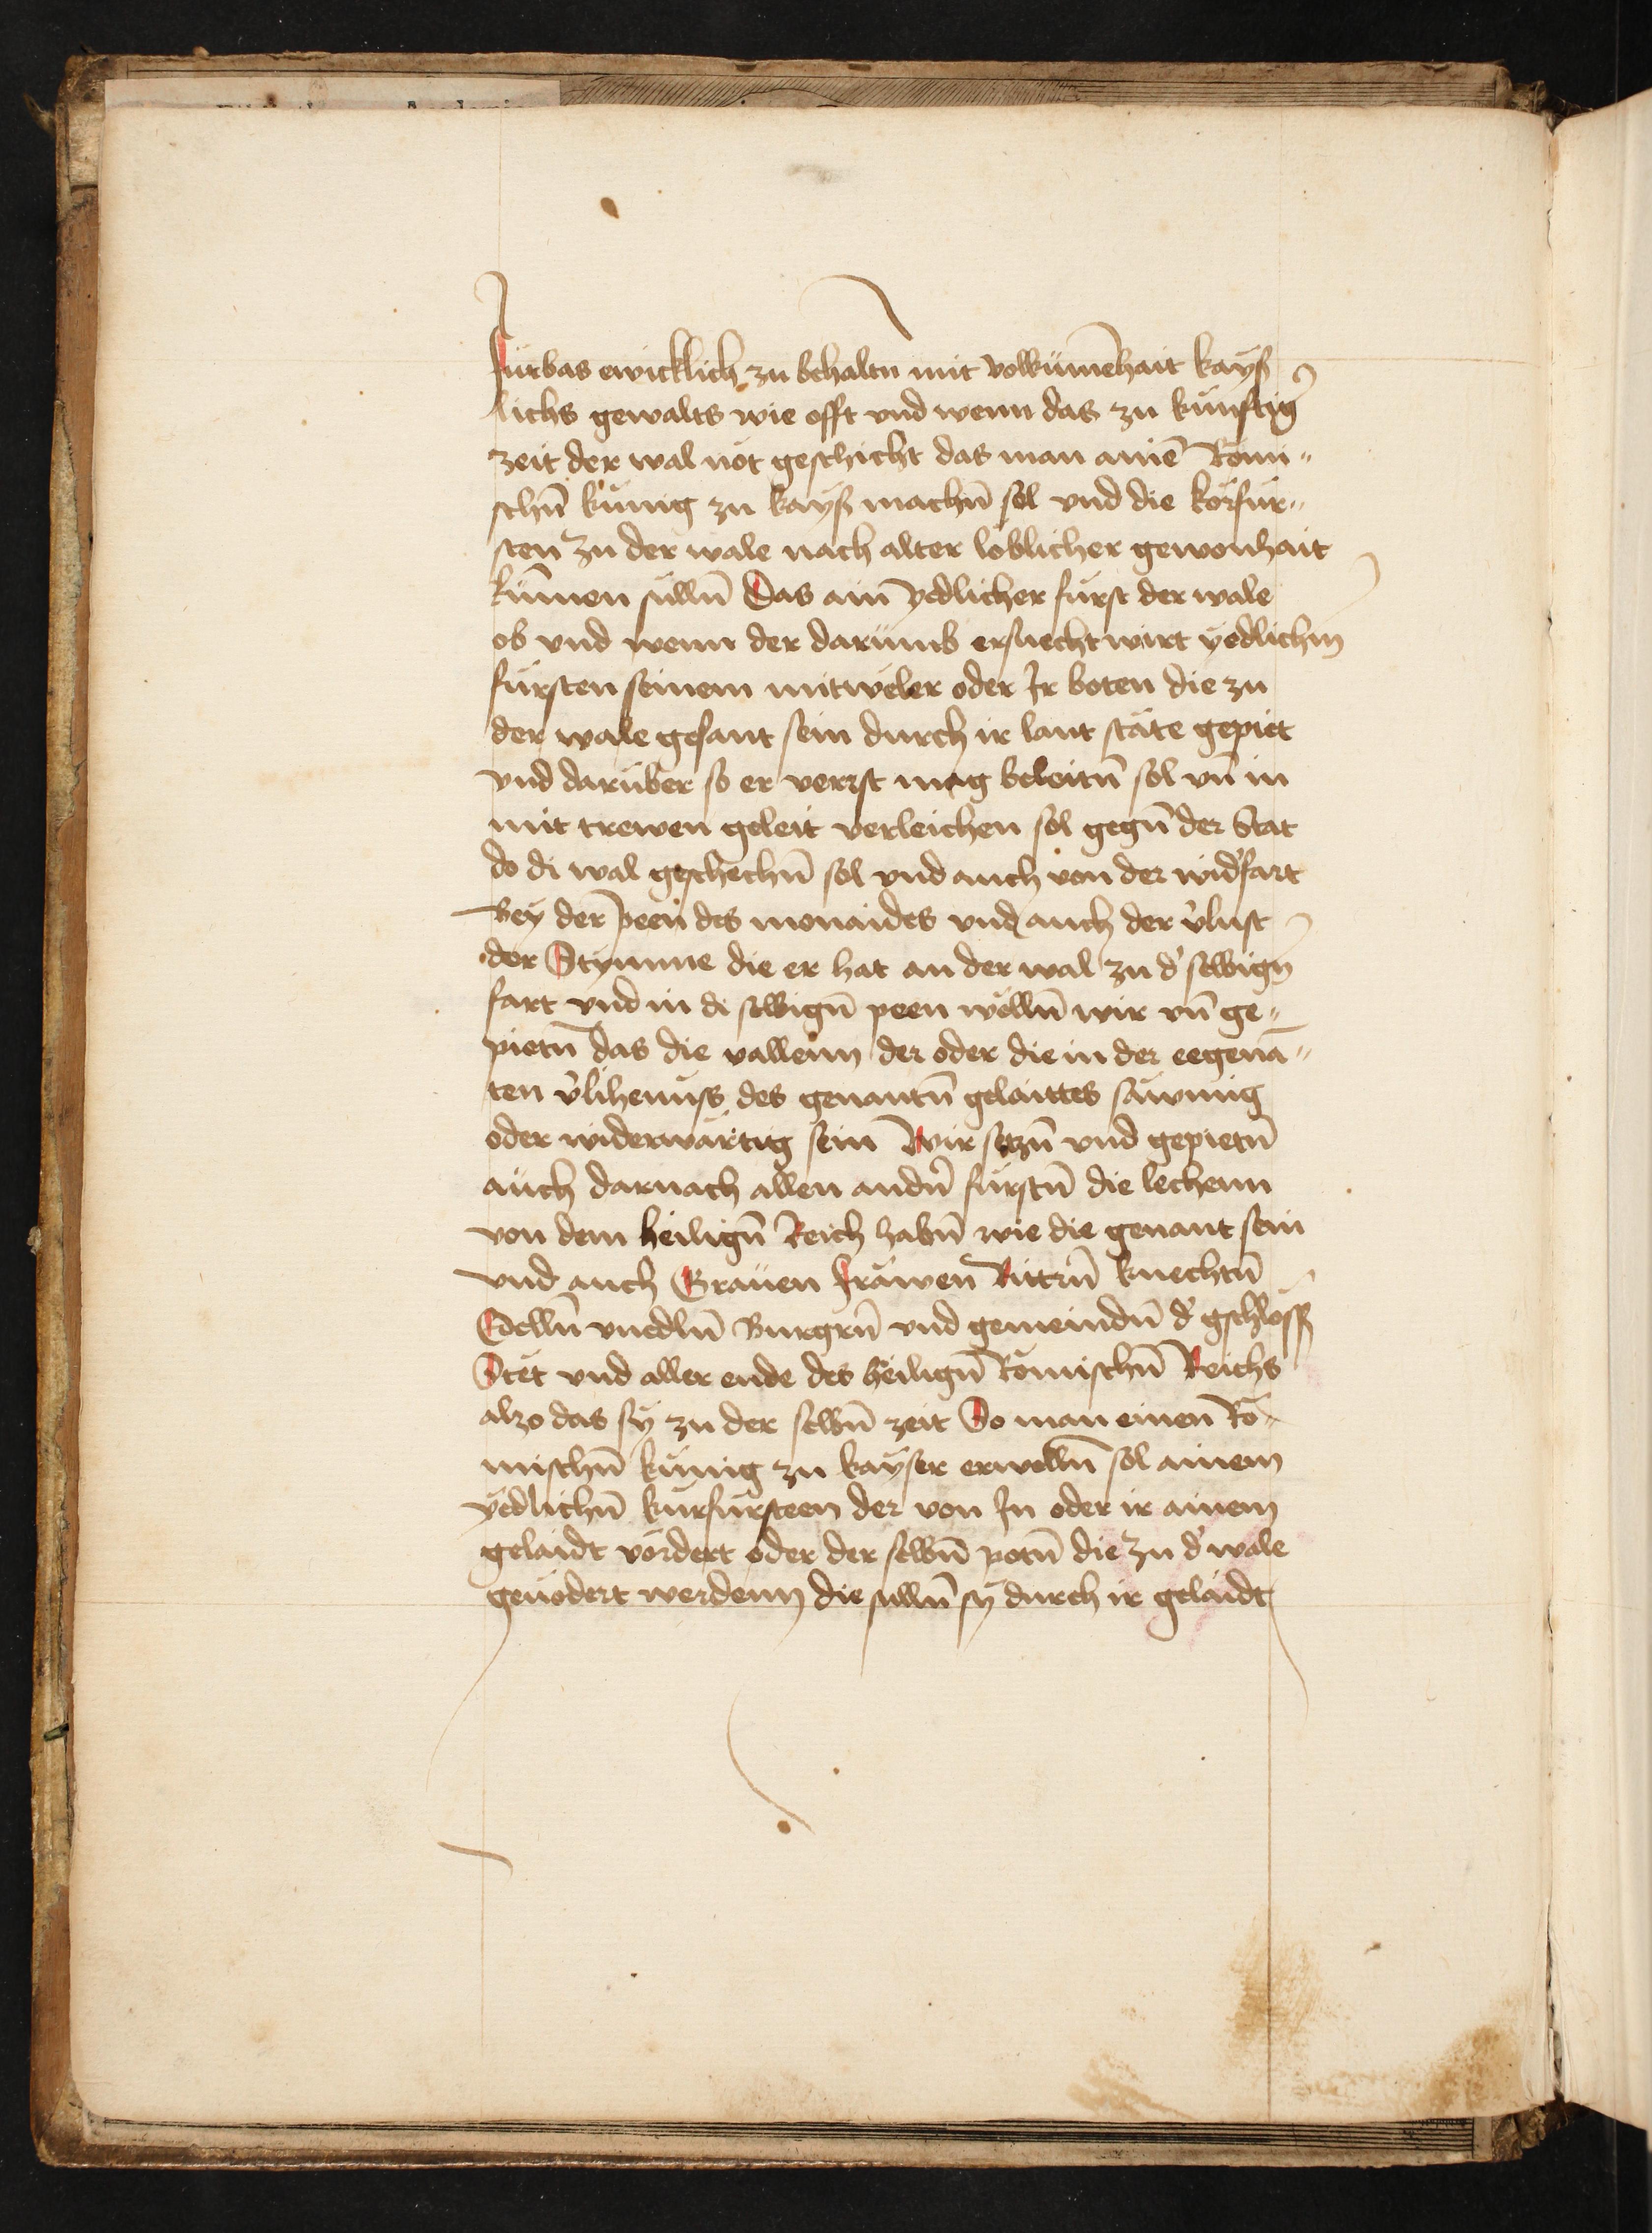 fúrbas ewicklich zu behaltn mit volkúmēhait kayß
lichs gewalts wie offt vnd wenn das zu kúnftig
zeit der wal nöt geschicht das man ainē Römi〃
schn̄ kúnig zu kayß machn̄ sol vnd die körfúr〃
sten zu der wale nach alter löblicher gewonhait
kūmen súlln̄ Das ain yedlicher fúrst der wale
ob vnd wenn der darúmb ersuecht wirt yedlichm
fúrsten seinem mitweler oder Ir boten die zu
der wale gesant sein durch ir lant stäte gepiet
vnd darúber so er verrst mag beleitn̄ sol vn̄ in
mit trewen geleit verleichen sol gegn̄ der Stat
do di wal geschechn̄ sol vnd auch von der wid'fart
Bey der peen des monaides vnd auch der v'lust
der Stymme die er hat an der wal zu d' selbign
fart vnd in di selbign̄ peen wölln̄ wir vn̄ ge〃
pietn̄ das die vallenn der oder die in der eegenā〃
ten v'lihenúss des genantn̄ gelaittes säwmig
oder widerwärtig sein Wir setzn̄ vnd gepietn̄
auch darnach allen andn̄ fúrstn̄ die lechenn
von dem heilign̄ Reich habn̄ wie die genant sein
vnd auch Grauen fräwen Rittrn̄ knechtn̄
Edelln̄ vnedln̄ Burgrn̄ vnd gemeindn̄ d' gschloss
Stet vnd aller ende des heilign̄ Römischn̄ Reichs
alzo das sy zu der selbn̄ zeit So man einen Rö〃
mischn̄ kúnig zu kayser erwelln̄ sol ainem
yedlichn̄ kúrfúrsteen der von In oder ir ainem
gelaidt vördert oder der selbn̄ potn̄ die zu d' wale
geuödert werdenn die sulln̄ sy durch ir gelaidt